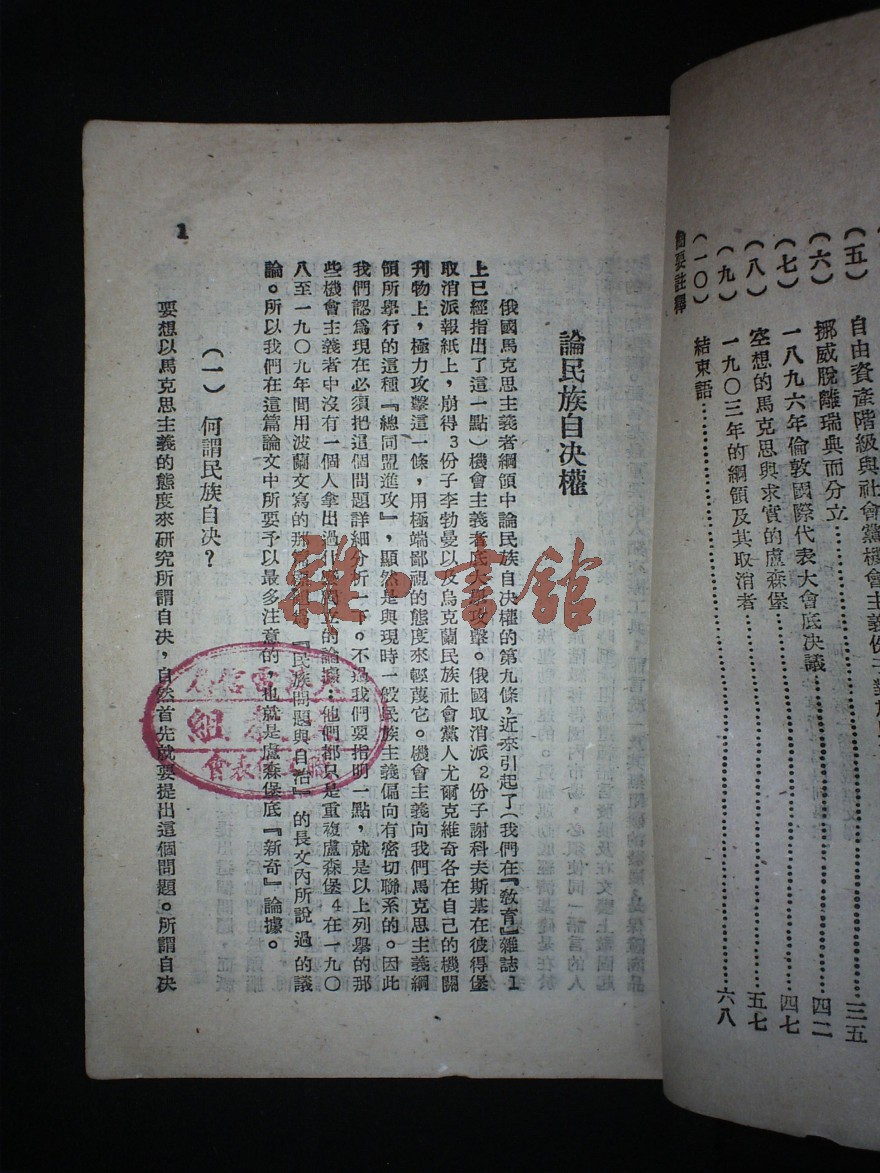 （五）自由資產階級與社會黨機會主義份子對於……三五
（六）挪威脫離瑞典而分立……四二
（七）一八九六年倫敦國際代表大會底決議……四七
（八）空想的馬克思與求實的盧森堡……五七
（九）一九〇三年的綱領及其取消者
（一〇）結束語……六八
簡要註釋
論民族自決權
俄國馬克思主義者綱領中論民族自決權的第九條，近來引起了（我們在『教育』雜誌1
上已經指出了這一點）機會主義者底大攻擊。俄國取消派2份子謝科夫斯基在彼得堡
取消派報紙上，崩得3份子李勃曼以及烏克蘭民族社會黨人尤爾克維奇各在自己的機關
刊物上，極力攻擊這一條，用極端鄙視的態度來輕蔑它。機會主義向我們馬克思主義綱
領所舉行的這種『總同盟進攻』，顯然是與現時一般民族主義偏向有密切聯系的。因此
我們認為現在必須把這個問題詳細分析一下。不過我們要指明一點，就是以上列舉的那
些機會主義者中沒有一個人拿出過什麼獨立的論據：他們都只是重複盧森堡4在一九〇
八至一九〇九年間用波蘭文寫的那篇『民族問題與自治』的長文內所說過的議
論。所以我們在這篇論文中所要予以最多注意的，也就是盧森堡底『新奇』論據。
（一）何謂民族自決？
要想以馬克思主義的態度來研究所謂自決，自然首先就要提出這個問題。所謂自決
1
雜·書館
組
會表